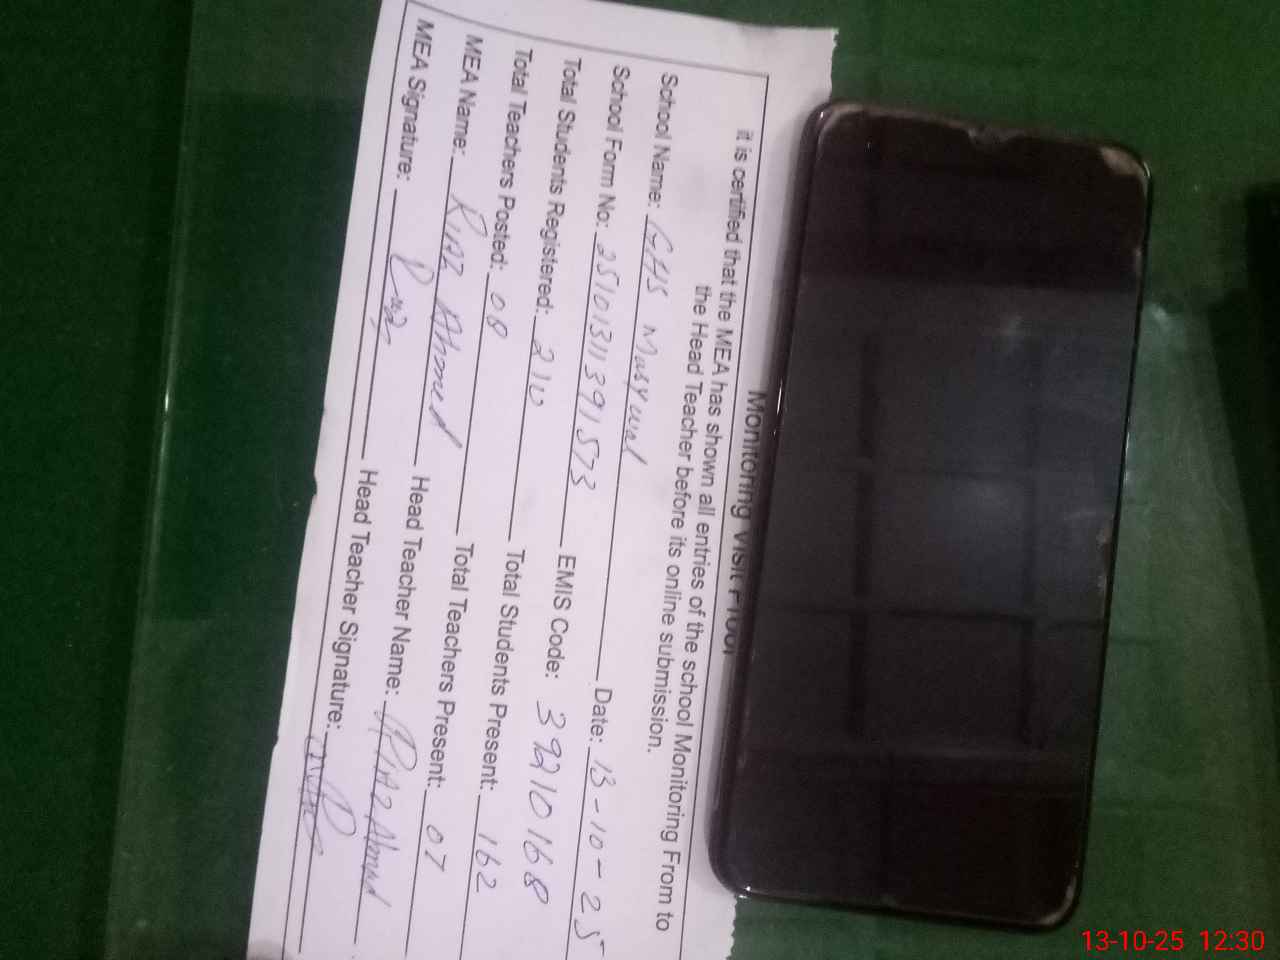 Monitoring Visit Proof
it is certified that the MEA has shown all entries of the school Monitoring From to
the Head Teacher before its online submission.
School Name: GHS Date: 13-10-25
School Form No: 2510131139 1573 EMIS Code: 39210168
Total Students Registered: 210 Total Students Present: 162
Total Teachers Posted: 08 Total Teachers Present: 07
MEA Name: Riaz Ahmed Head Teacher Name: Riaz Ahmad
MEA Signature: Riaz Head Teacher Signature:
13-10-25 12:30